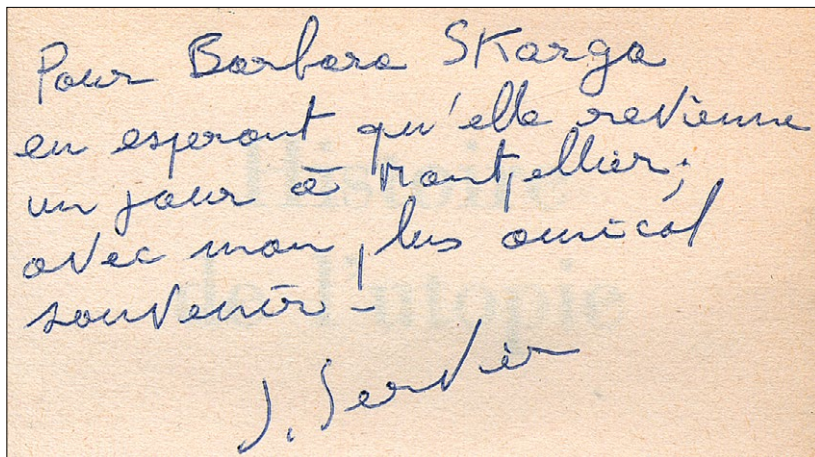 Pour Barbara Skarga
en esperant qu'elle revienne
un jour à Montpellier;
avec mon plus amical
souvenir -
J. Servier
Histoire
de l'utopie